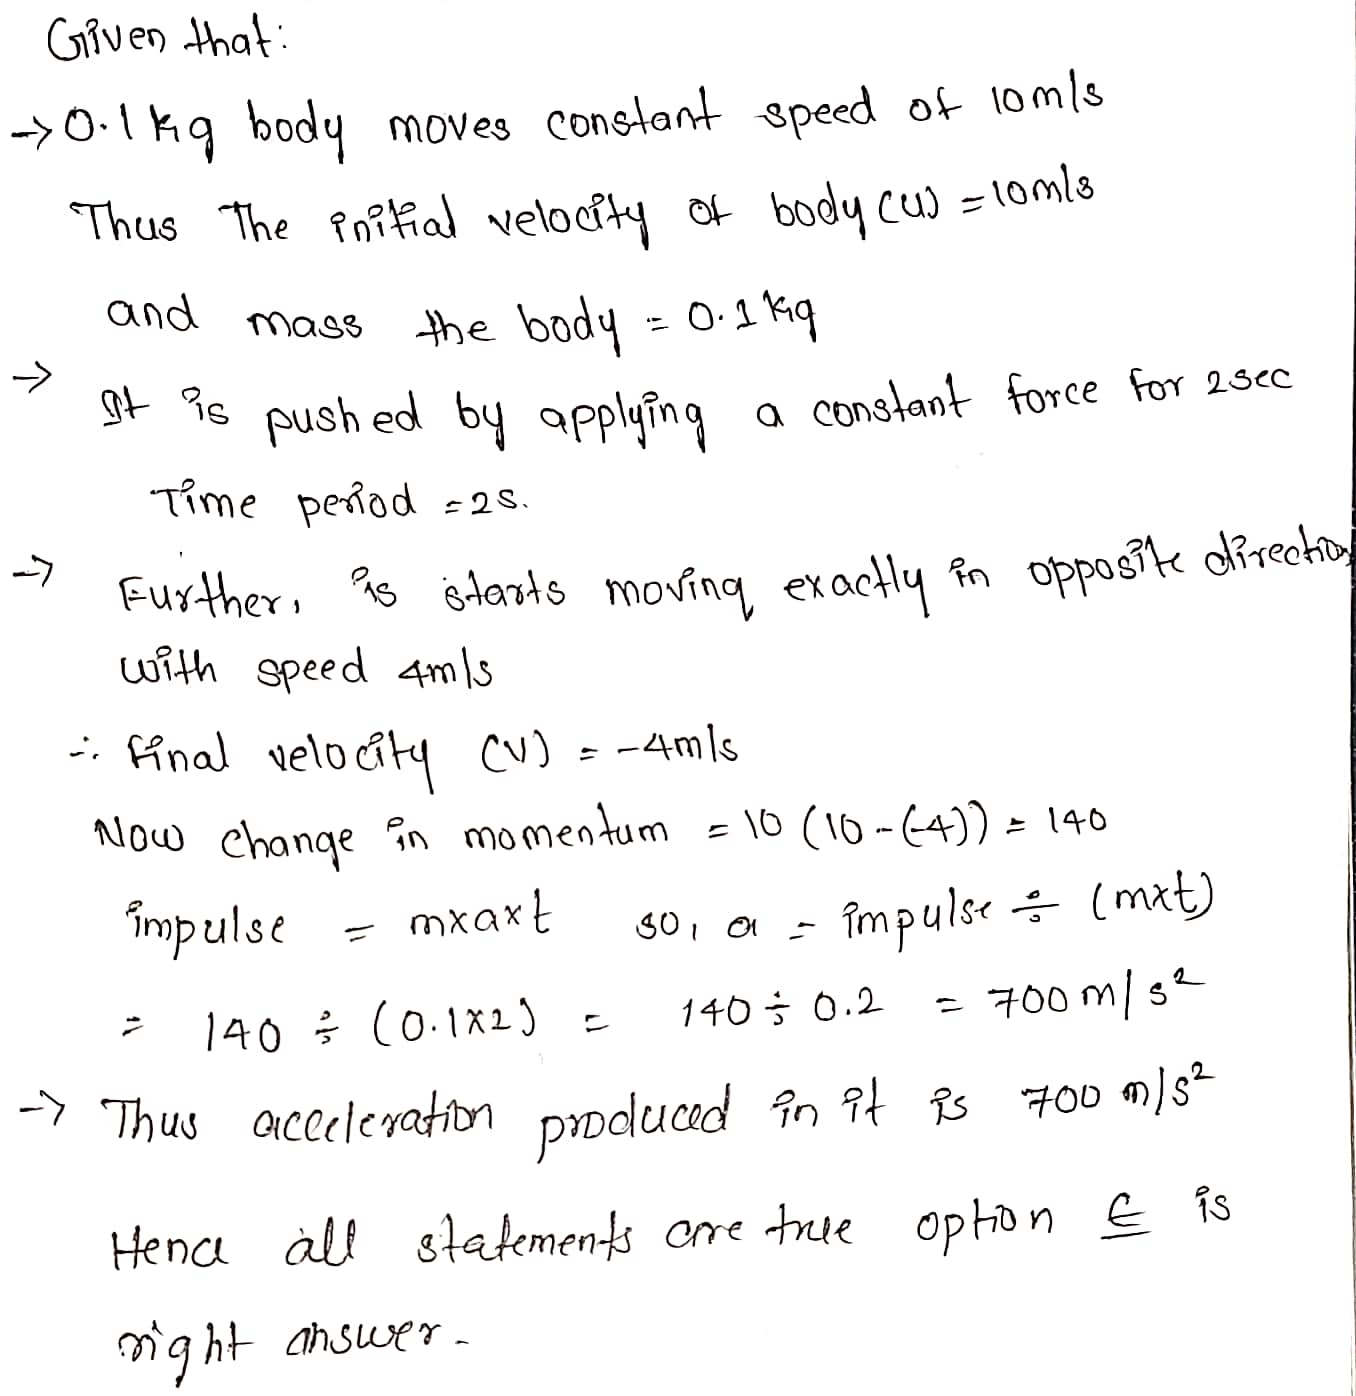 Given that:
→ 0.1 kg body moves constant speed of 10m/s
Thus The initial velocity of body (u) = 10m/s
and mass the body = 0.1 kg
→ It is pushed by applying a constant force for 2sec
Time period = 2s.
→ Further, is starts moving exactly in opposite direction
with speed 4m/s
∴ final velocity (v) = -4m/s
Now change in momentum = 10 (10-(-4)) = 140
impulse = m×a×t so, a = impulse ÷ (m×t)
= 140 ÷ (0.1×2) = 140 ÷ 0.2 = 700 m/s²
→ Thus acceleration produced in it is 700 m/s²
Hence all statements are true option E is
right answer.